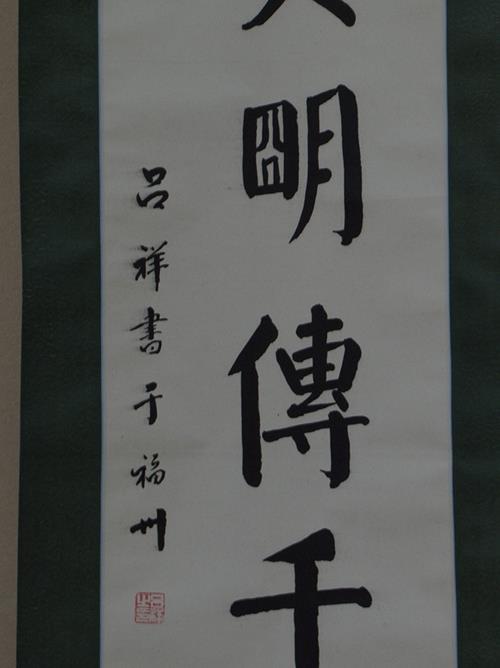 朙傳千
吕祥書于福州